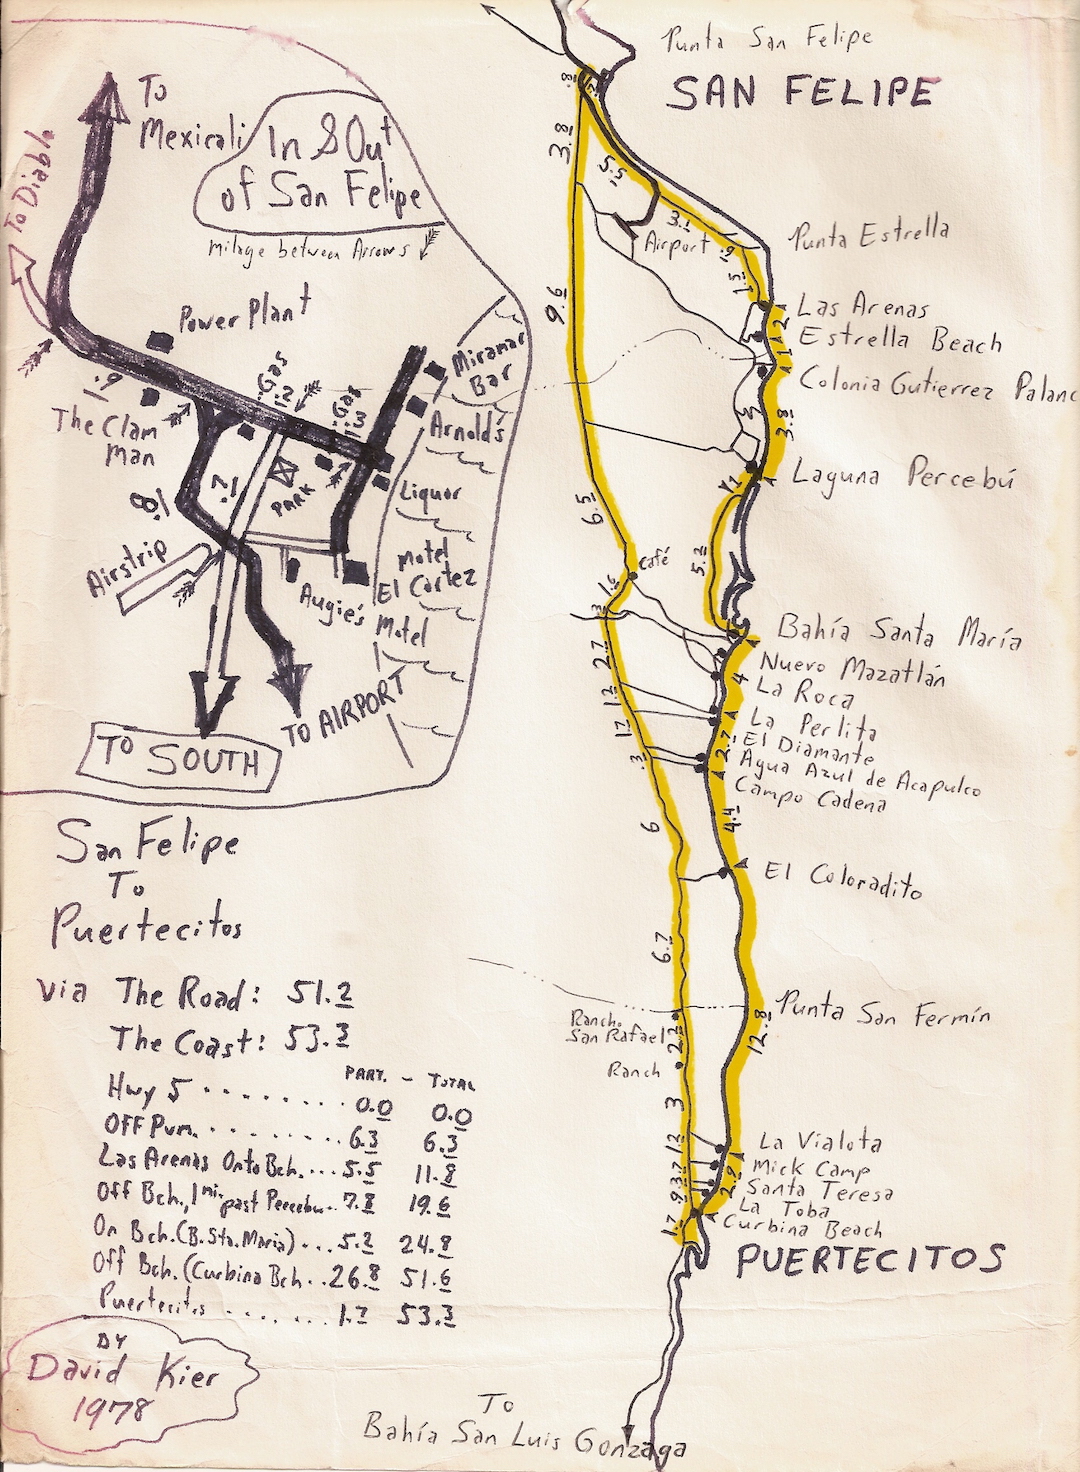 To
Mexicali
To Diablo
In & Out
of San Felipe
milage between Arrows
Power Plant
.9
The Clam
Man
Gas
.2
Gas
.3
Miramar
Bar
Arnold's
Liquor
PARK
1.7
1.8
Airstrip
Motel
El Cortez
Augie's
Motel
TO AIRPORT
TO SOUTH
San Felipe
To
Puertecitos
via The Road: 51.2
The Coast: 53.3
PART. - TOTAL
Hwy 5 ........ 0.0 0.0
OFF Pvm. ........ 6.3 6.3
Las Arenas Onto Bch.... 5.5 11.8
Off Bch., 1 mi. past Percebu.. 7.8 19.6
On Bch.(B. Sta. Maria)... 5.2 24.8
Off Bch. (Curbina Bch.. 26.8 51.6
Puertecitos ....... 1.7 53.3
BY
David Kier
1978
Punta San Felipe
SAN FELIPE
.8
3.8
5.5
3.1
Airport
Punta Estrella
9.6
Las Arenas
2
Estrella Beach
1
Colonia Gutierrez Palanc
3.8
Laguna Percebú
6.5
1
5.2
Café
1.6
.3
Bahía Santa María
2.7
Nuevo Mazatlán
4
La Roca
1.2
La Perlita
1.7
El Diamante
2.7
Agua Azul de Acapulco
.3
Campo Cadena
4.4
6
El Coloradito
6.7
Punta San Fermín
12.8
Rancho
San Rafael
2.2
Ranch
3
La Vialota
1.2
Mick Camp
Santa Teresa
2.9
La Toba
Curbina Beach
1.7
PUERTECITOS
To
Bahía San Luis Gonzaga